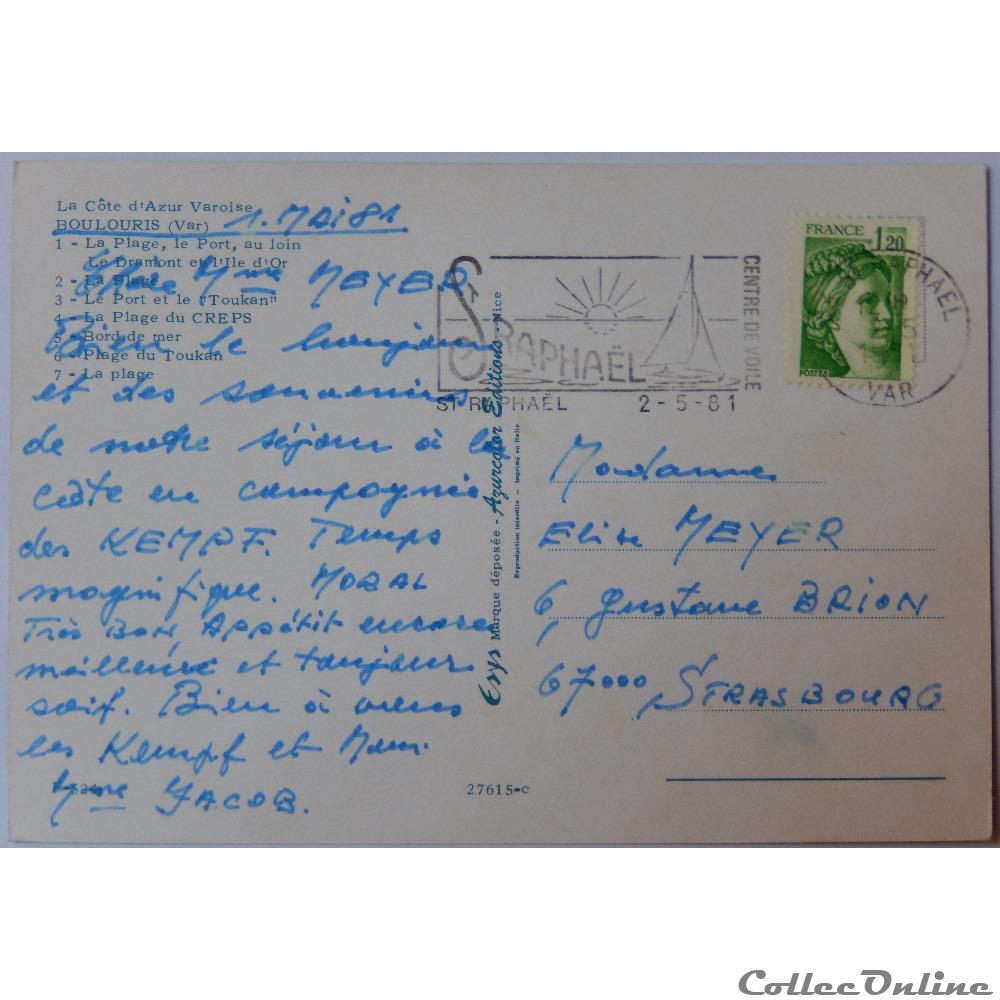 La Côte d'Azur Varoise
BOULOURIS (Var) 1. MAI 81
1 - La Plage, le Port, au loin
Le Dramont et l'Ile d'Or
2 - La Plage
3 - Le Port et le "Toukan"
4 - La Plage du CREPS
5 - Bord de mer
6 - Plage du Toukan
7 - La plage
Chère Mme MEYER
Bien le bonjour
et des souvenirs
de notre séjour à la
côte en compagnie
des KEMPF. Temps
magnifique. MORAL
Très BON APPétit encore
meilleur et toujours
soif. Bien à vous
les Kempf et
Mme JACOB.
27615-c
Erys Marque déposée - Azurcolor Editions - Nice
Reproduction interdite - Imprimé en Italie
St RAPHAËL
CENTRE DE VOILE
ST RAPHAËL 2-5-81
FRANCE 1,20
POSTES
RAPHAEL
VAR
Madame
Elise MEYER
6, gustave BRION
67000 STRASBOURG
CollecOnline